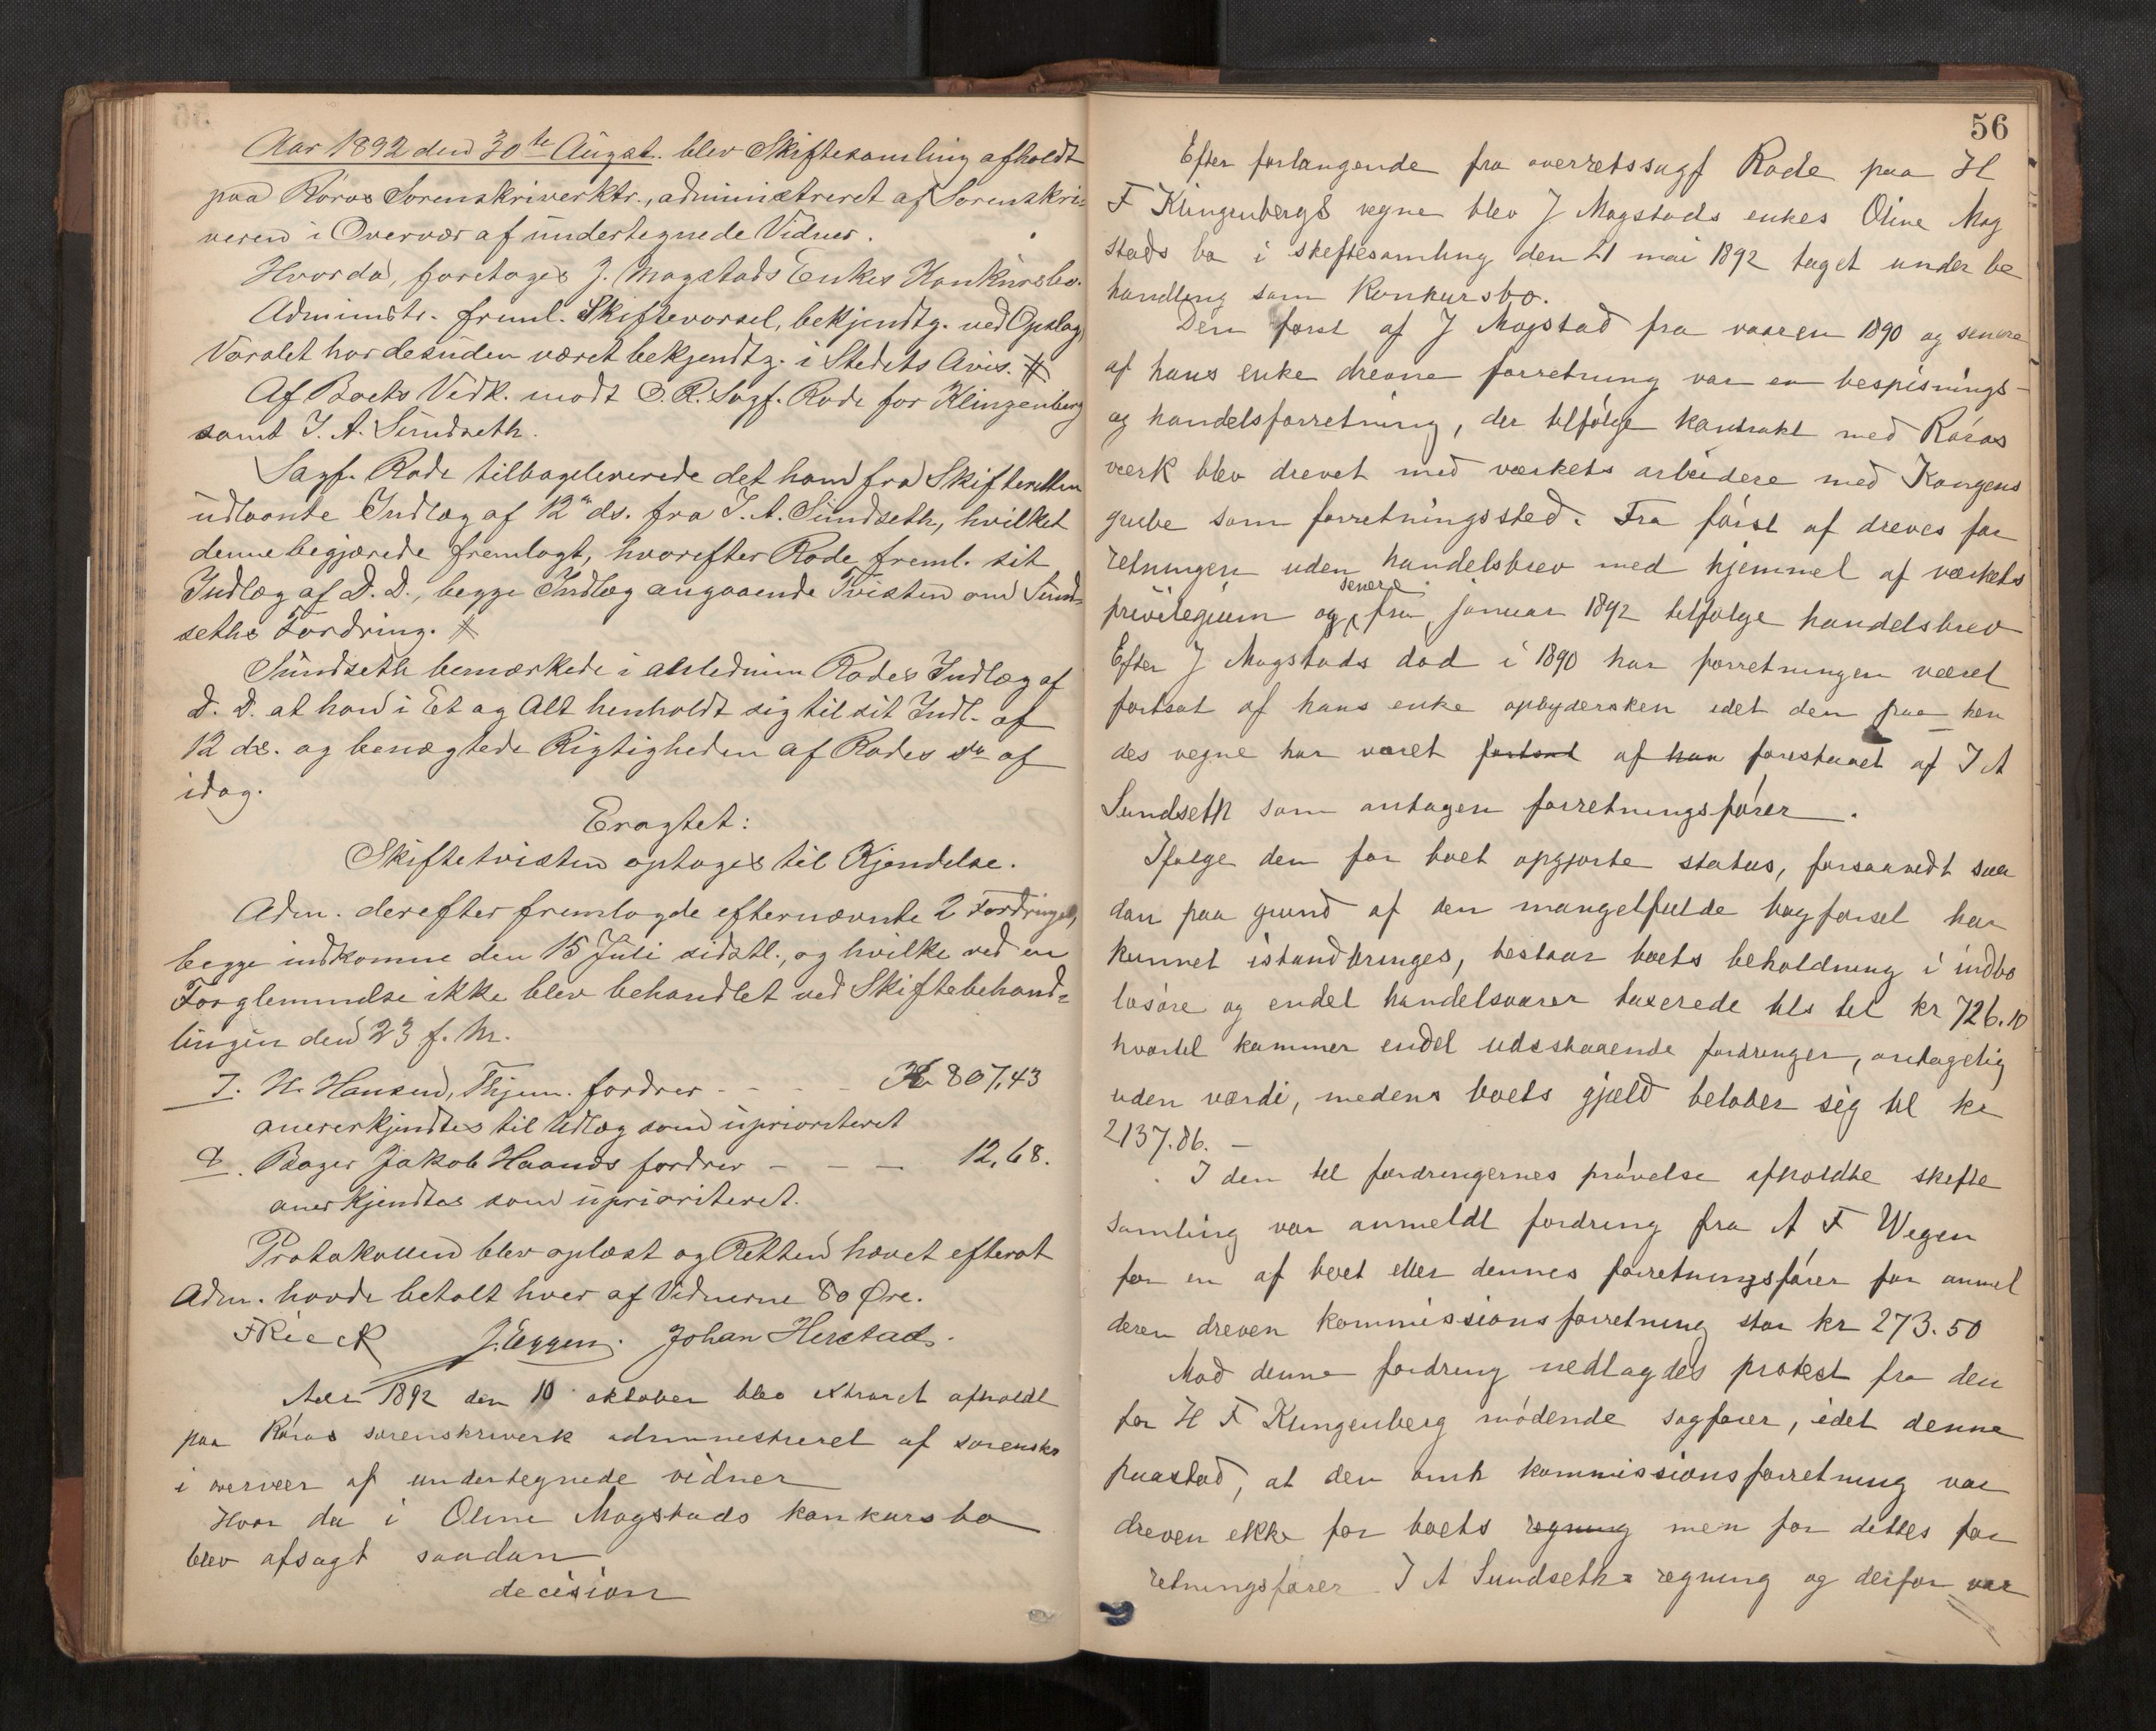 Aar 1892 den 30te August. blev Skiftesamling afholdt
paa Røros Sorenskriverktr., administreret af Sorenskri-
veren i Overvær af undertegnede Vidner.
Hvorda, foretoges J. Magstads Enkes Konkursbo.
Administr. freml. Skiftevarsel, bekjendtg. ved Opslag,
Varslet har desuden været bekjendtg. i Stedets Avis. #
Af Boets Vedk. mødt O.R.Sagf. Rode for Klingenberg
samt J. A. Sundseth.
Sagf. Rode tilbageleverede det ham fra Skifteretten
udlaante Indlæg af 12te ds. fra J. A. Sundseth, hvilket
denne begjærede fremlagt, hvorefter Rode freml. sit
Indlæg af D. D., begge Indlæg angaaende Tvisten om Sund-
seths Fordring. #
Sundseth bemærkede i Rodes Indlæg af
D. D. at han i Et og Alt henholdt sig til sit Indl. af
12 ds. og benægtede Rigtigheden af Rodes do af
idag.
Eragtet:
Skiftetvisten optages til Kjendelse.
Adm. derefter fremlagde efternævnte 2 Fordringer,
begge indkomne den 15 Juli sidstl., og hvilke ved en
Forglemmelse ikke blev behandlet ved Skiftebehand-
lingen den 23 f. M.
7. H. Hansen, Thjem. fordrer - - - - Kr 807,43
anererkjendtes til Udlæg som uprioriteret
8. Bager Jakob Haands fordrer - - - 12,68.
anerkjendtes som uprioriteret.
Protokollen blev oplæst og Retten hævet efterat
Adm. havde betalt hver af Vidnerne 80 Øre.
FRieck J. Eggen. Johan Herstad.
Aar 1892 den 10 oktober blev extraret afholdt
paa Røros sorenskriverk administreret af sorenskr
i overvær af undertegnede vidner
Hvor da i Oline Magstads konkursbo
blev afsagt saadan
decision
56
Efter forlangende fra overretssagf Rode paa H
F Klingenbergs vegne blev J Magstads enkes Oline Mag
stads bo i skiftesamling den 21 mai 1892 taget under be
handling som Konkursbo.
Den først af J Magstad fra vaaren 1890 og senere
af hans enke drevne forretning var en bespisnings-
og handelsforretning, der tilfølge kontrakt med Røros
værk blev drevet med værkets arbeidere med Kongens
grube som forretningssted. Fra først af dreves for
retningen uden handelsbrev med hjemmel af værkets
privilegium og senere fra januar 1892 tilfølge handelsbrev
Efter J Magstads død i 1890 har forretningen været
fortsat af hans enke opbydersken idet den paa hen
des vegne har været fortsat af han forestaaet af J A
Sundseth som antagen forretningsfører.
Ifølge den for boet opgjorte status, forsaavidt saa
dan paa grund af den mangelfulde bogførsel har
kunnet istandbringes, bestaar boets beholdning i indbo
løsøre og endel handelsvarer taxerede tils til kr 726.10
hvortil kommer endel udestaaende fordringer, antagelig
uden værdi, medens boets gjæld beløber sig til kr
2137.86. —
I den til fordringernes prøvelse afholdte skifte
samling var anmeldt fordring fra A F Wegen
for en af boet eller dennes forretningsfører for anmel
deren dreven kommissionsforretning stor kr 273.50
Mod denne fordring nedlagdes protest fra den
for H F Klingenberg mødende sagfører, idet denne
paastod, at den omh kommissionsforretning var
dreven ikke for boets regning men for dettes for
retningsfører J A Sundseths regning og derfor var